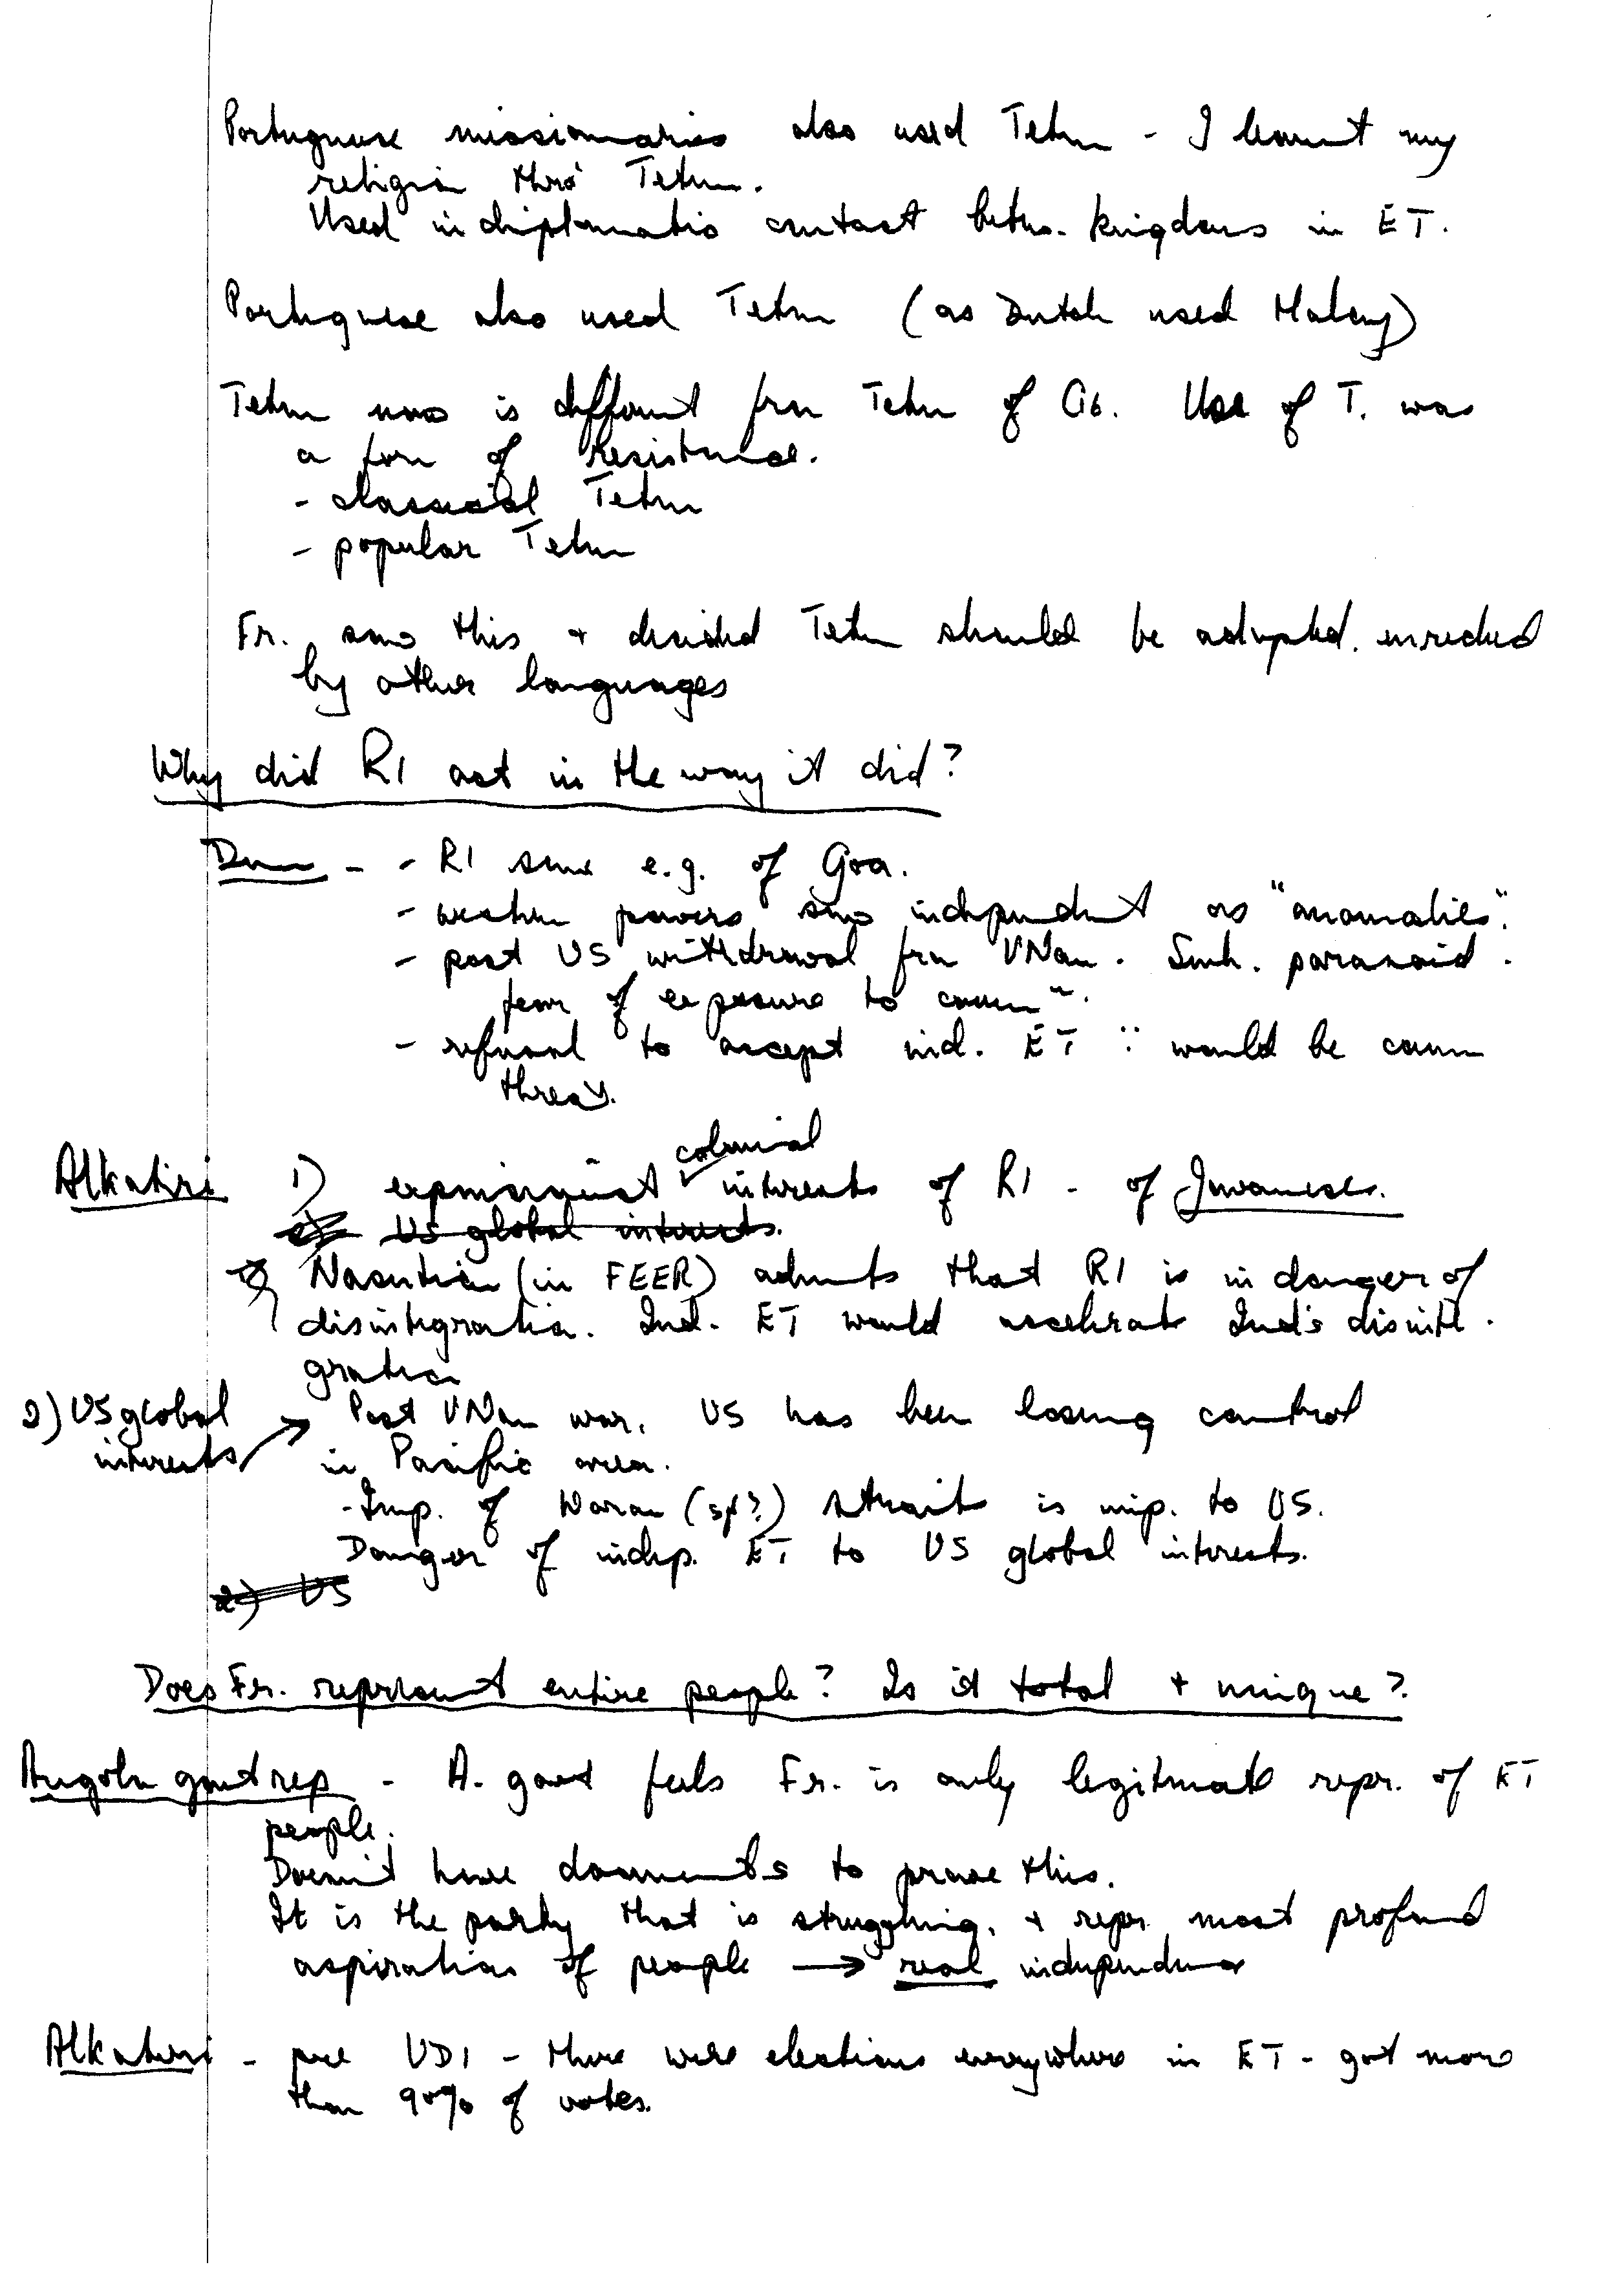 Portuguese missionaries also used Tetum - I learnt my
religion thro' Tetum.
Used in diplomatic contact betw. kingdoms in ET.
Portuguese also used Tetum (as Dutch used Malay)
Tetum now is different from Tetum of C16. Use of T. was
a form of resistance.
- classical Tetum
- popular Tetum
Fr. saw this + decided Tetum should be adopted. enriched
by other languages
Why did RI act in the way it did?
Dunn - - RI saw e.g. of Goa.
- western powers saw independent as "anomalies".
- post US withdrawal from VNam. Suh. paranoid.
fear of exposure to commm.
- refusal to accept ind. ET ∵ would be comm
threat.
colonial
Alkatiri 1) expansionist interests of RI - of Javanese.
2) US global interests.
Nasution (in FEER) admits that RI is in danger of
disintegration. Ind. ET would accelerate Ind's disinte.
gration
2) US global interests → Post VNam war. US has been losing control
in Pacific area.
- Imp. of (sp?) strait is imp. to US.
Danger of indep. ET to US global interests.
2) US
Does Fr. represent entire people? Is it total + unique?
Angola govt rep - A. govt feels Fr. is only legitimate repr. of ET
people.
Doesn't have documents to prove this.
It is the party that is struggling. + repr. most profound
aspirations of people → real independence
Alkatiri - pre UDI - there were elections everywhere in ET - got more
than 90% of votes.